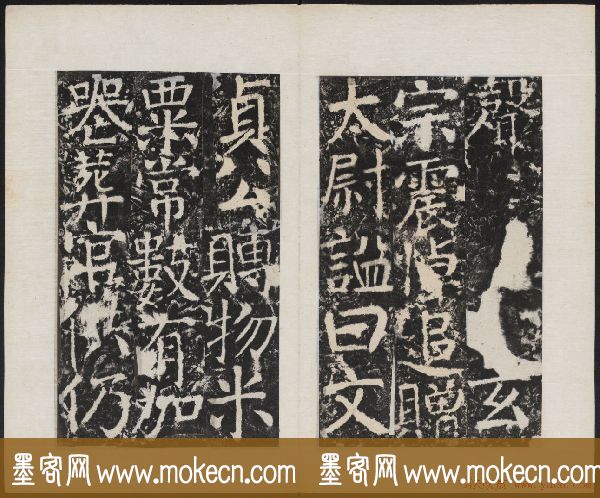 聲玄
宗震悼追贈
太尉謚曰文
貞公賻物米
粟常數有加
器葬官供仍
墨客网 www.mokecn.com
墨客网 www.mokecn.com